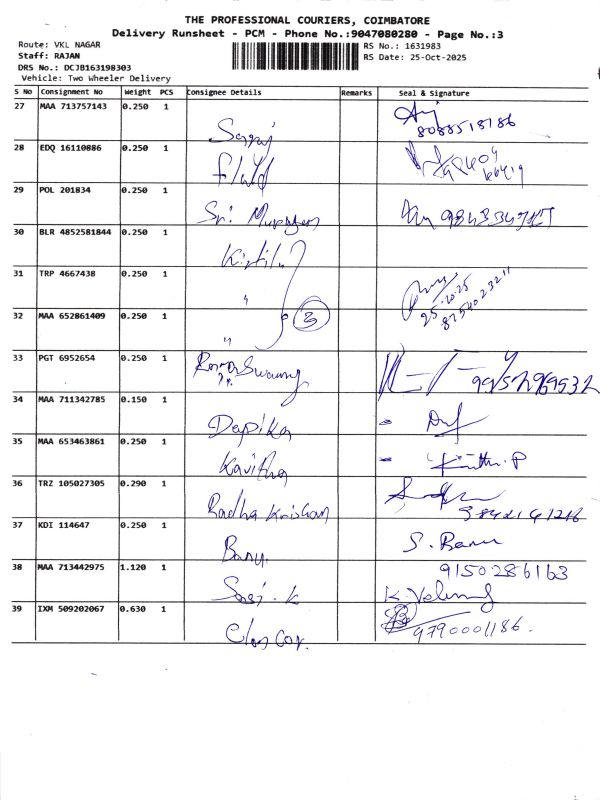 THE PROFESSIONAL COURIERS, COIMBATORE
Delivery Runsheet - PCM - Phone No.:9047080280 - Page No.:3
Route: VKL NAGAR
RS No.: 1631983
Staff: RAJAN
RS Date: 25-Oct-2025
DRS No.: DCJB163198303
Vehicle: Two Wheeler Delivery
S No Consignment No Weight PCS Consignee Details Remarks Seal & Signature
27 MAA 713757143 0.250 1
8088518186
28 EDQ 16110886 0.250 1
29 POL 201834 0.250 1
Sri Murugan
30 BLR 4852581844 0.250 1
31 TRP 4667438 0.250 1
"
25.10.25
8754023211
32 MAA 652861409 0.250 1
3
"
33 PGT 6952654 0.250 1
34 MAA 711342785 0.150 1
Depika
35 MAA 653463861 0.250 1
Kavitha
36 TRZ 105027305 0.290 1
Radha Krishan
37 KDI 114647 0.250 1
Banu
S. Banu
38 MAA 713442975 1.120 1
9150286163
Sasi. K
39 IXM 509202067 0.630 1
9790001186.